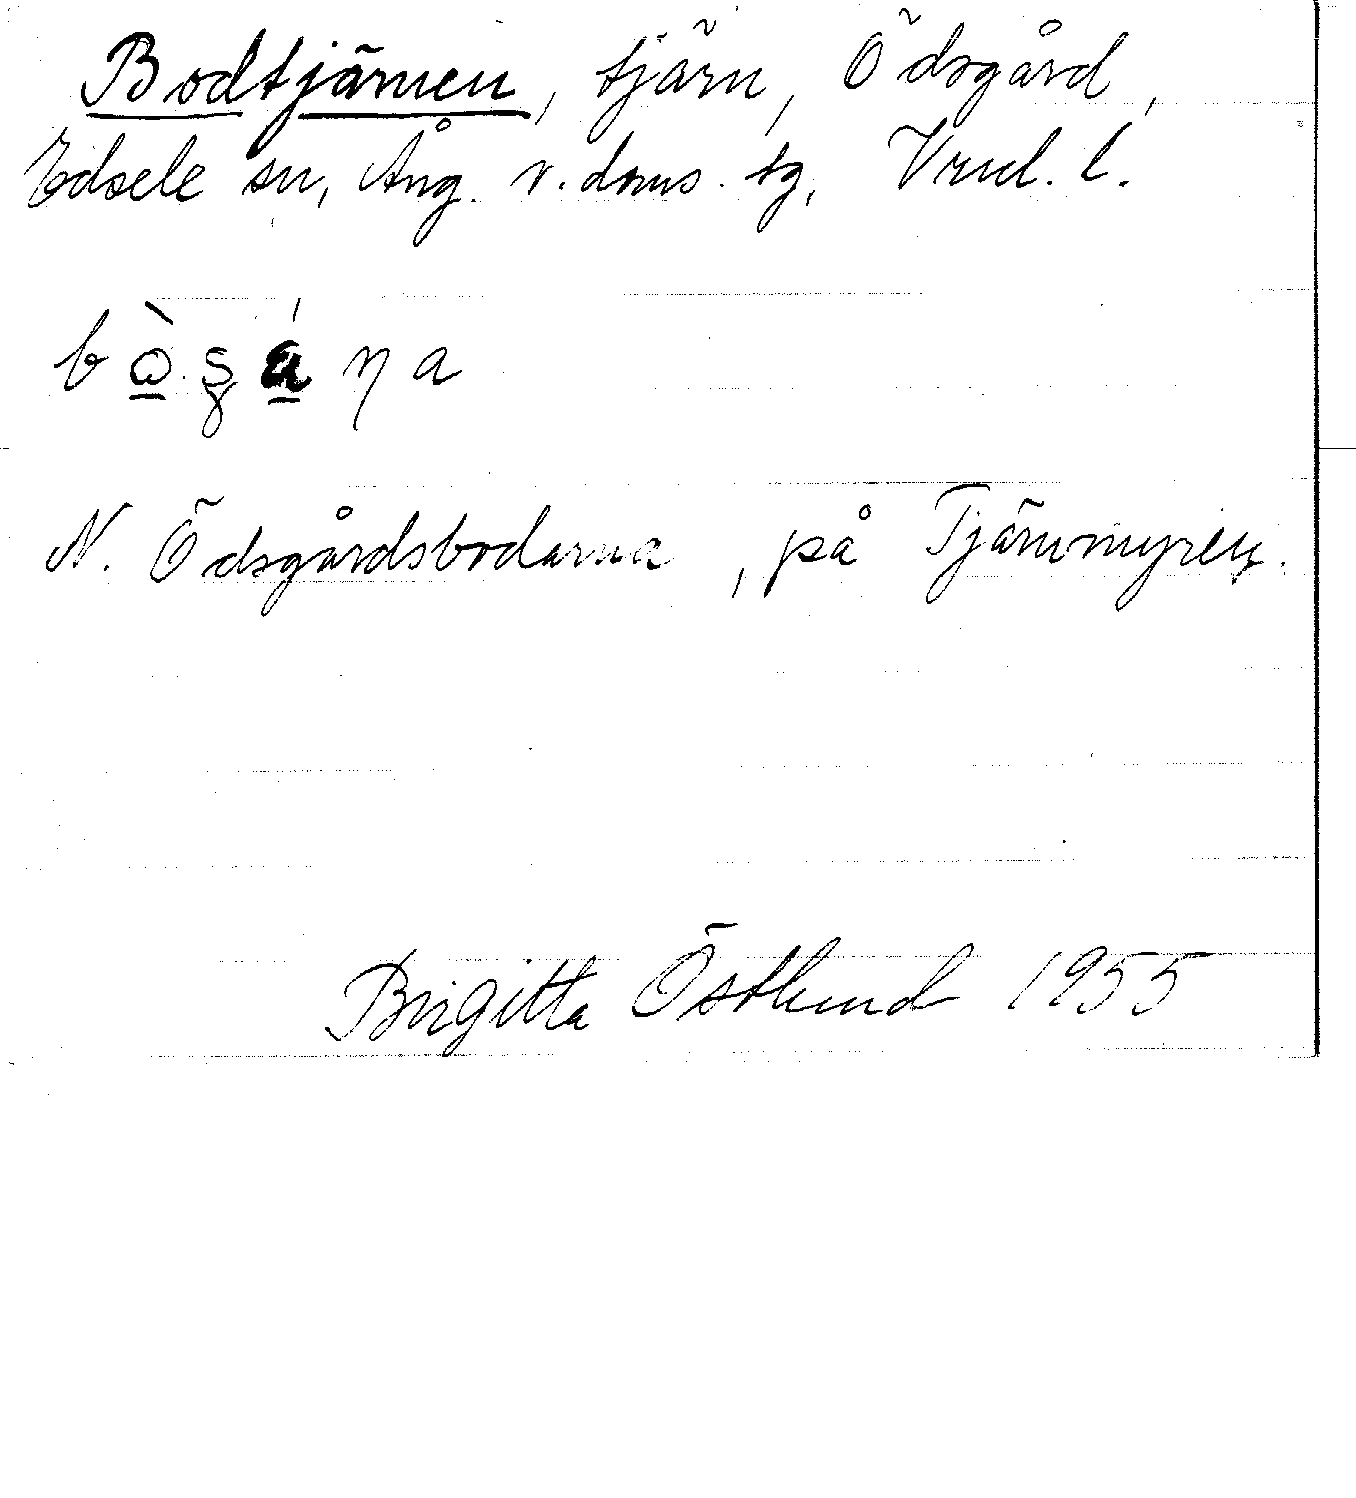 Bodtjärnen, tjärn, Ödsgård,
Edsele sn, Ång. v. doms. tg, Vrnl. l.
N. Ödsgårdsbodarna, på Tjärnmyren.
Birgitta Östlund 1955